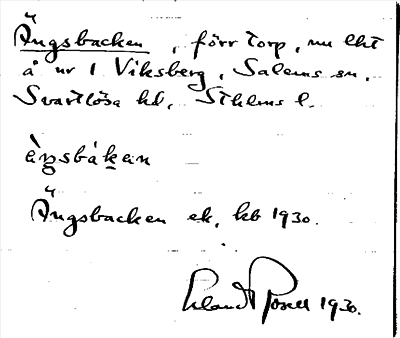 Ängsbacken, förr torp, nu lht
å nr 1 Viksberg, Salems sn.
Svartlösa hd, Sthlms l.
ängsbákan
Ängsbacken ek. kb 1930.
Erland Rosell 1930.